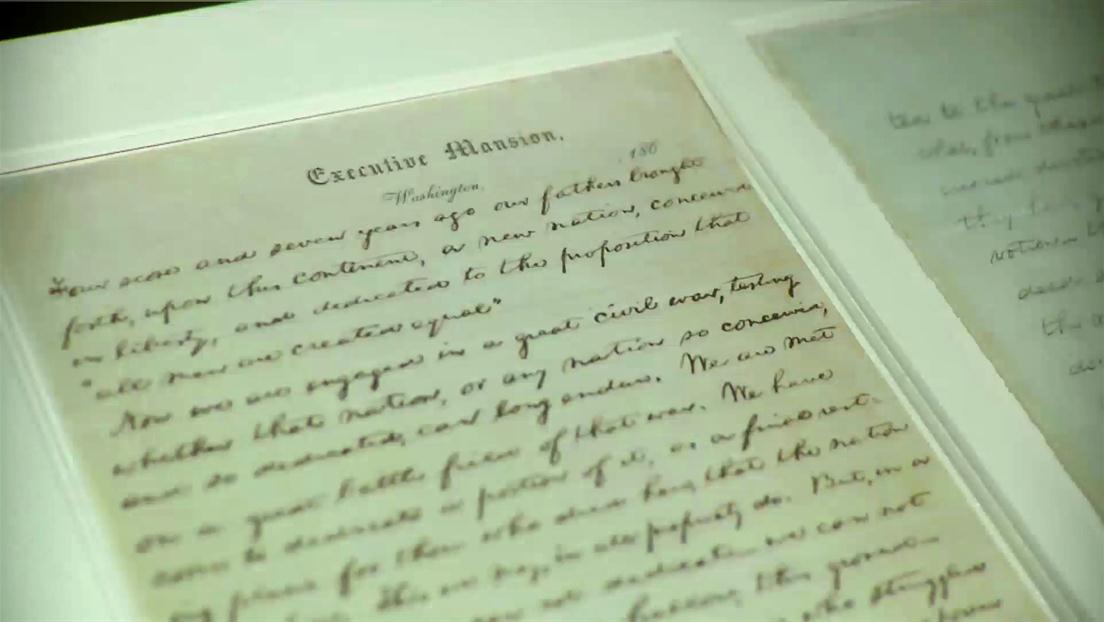 Executive Mansion,
Washington, , 186
Four score and seven years ago our fathers brought
forth, upon this continent, a new nation, conceived
in liberty, and dedicated to the proposition that
"all men are created equal"
Now we are engaged in a great civil war, testing
whether that nation, or any nation so conceived,
and so dedicated, can long endure. We are met
on a great battle field of that war. We have
come to dedicate a portion of it, as a final rest-
ing place for those who died here, that the nation
This we may, in all propriety do. But, in a
not dedicate we can not
hallow, this ground
who struggled
tion to the
that, from these
they here
votion